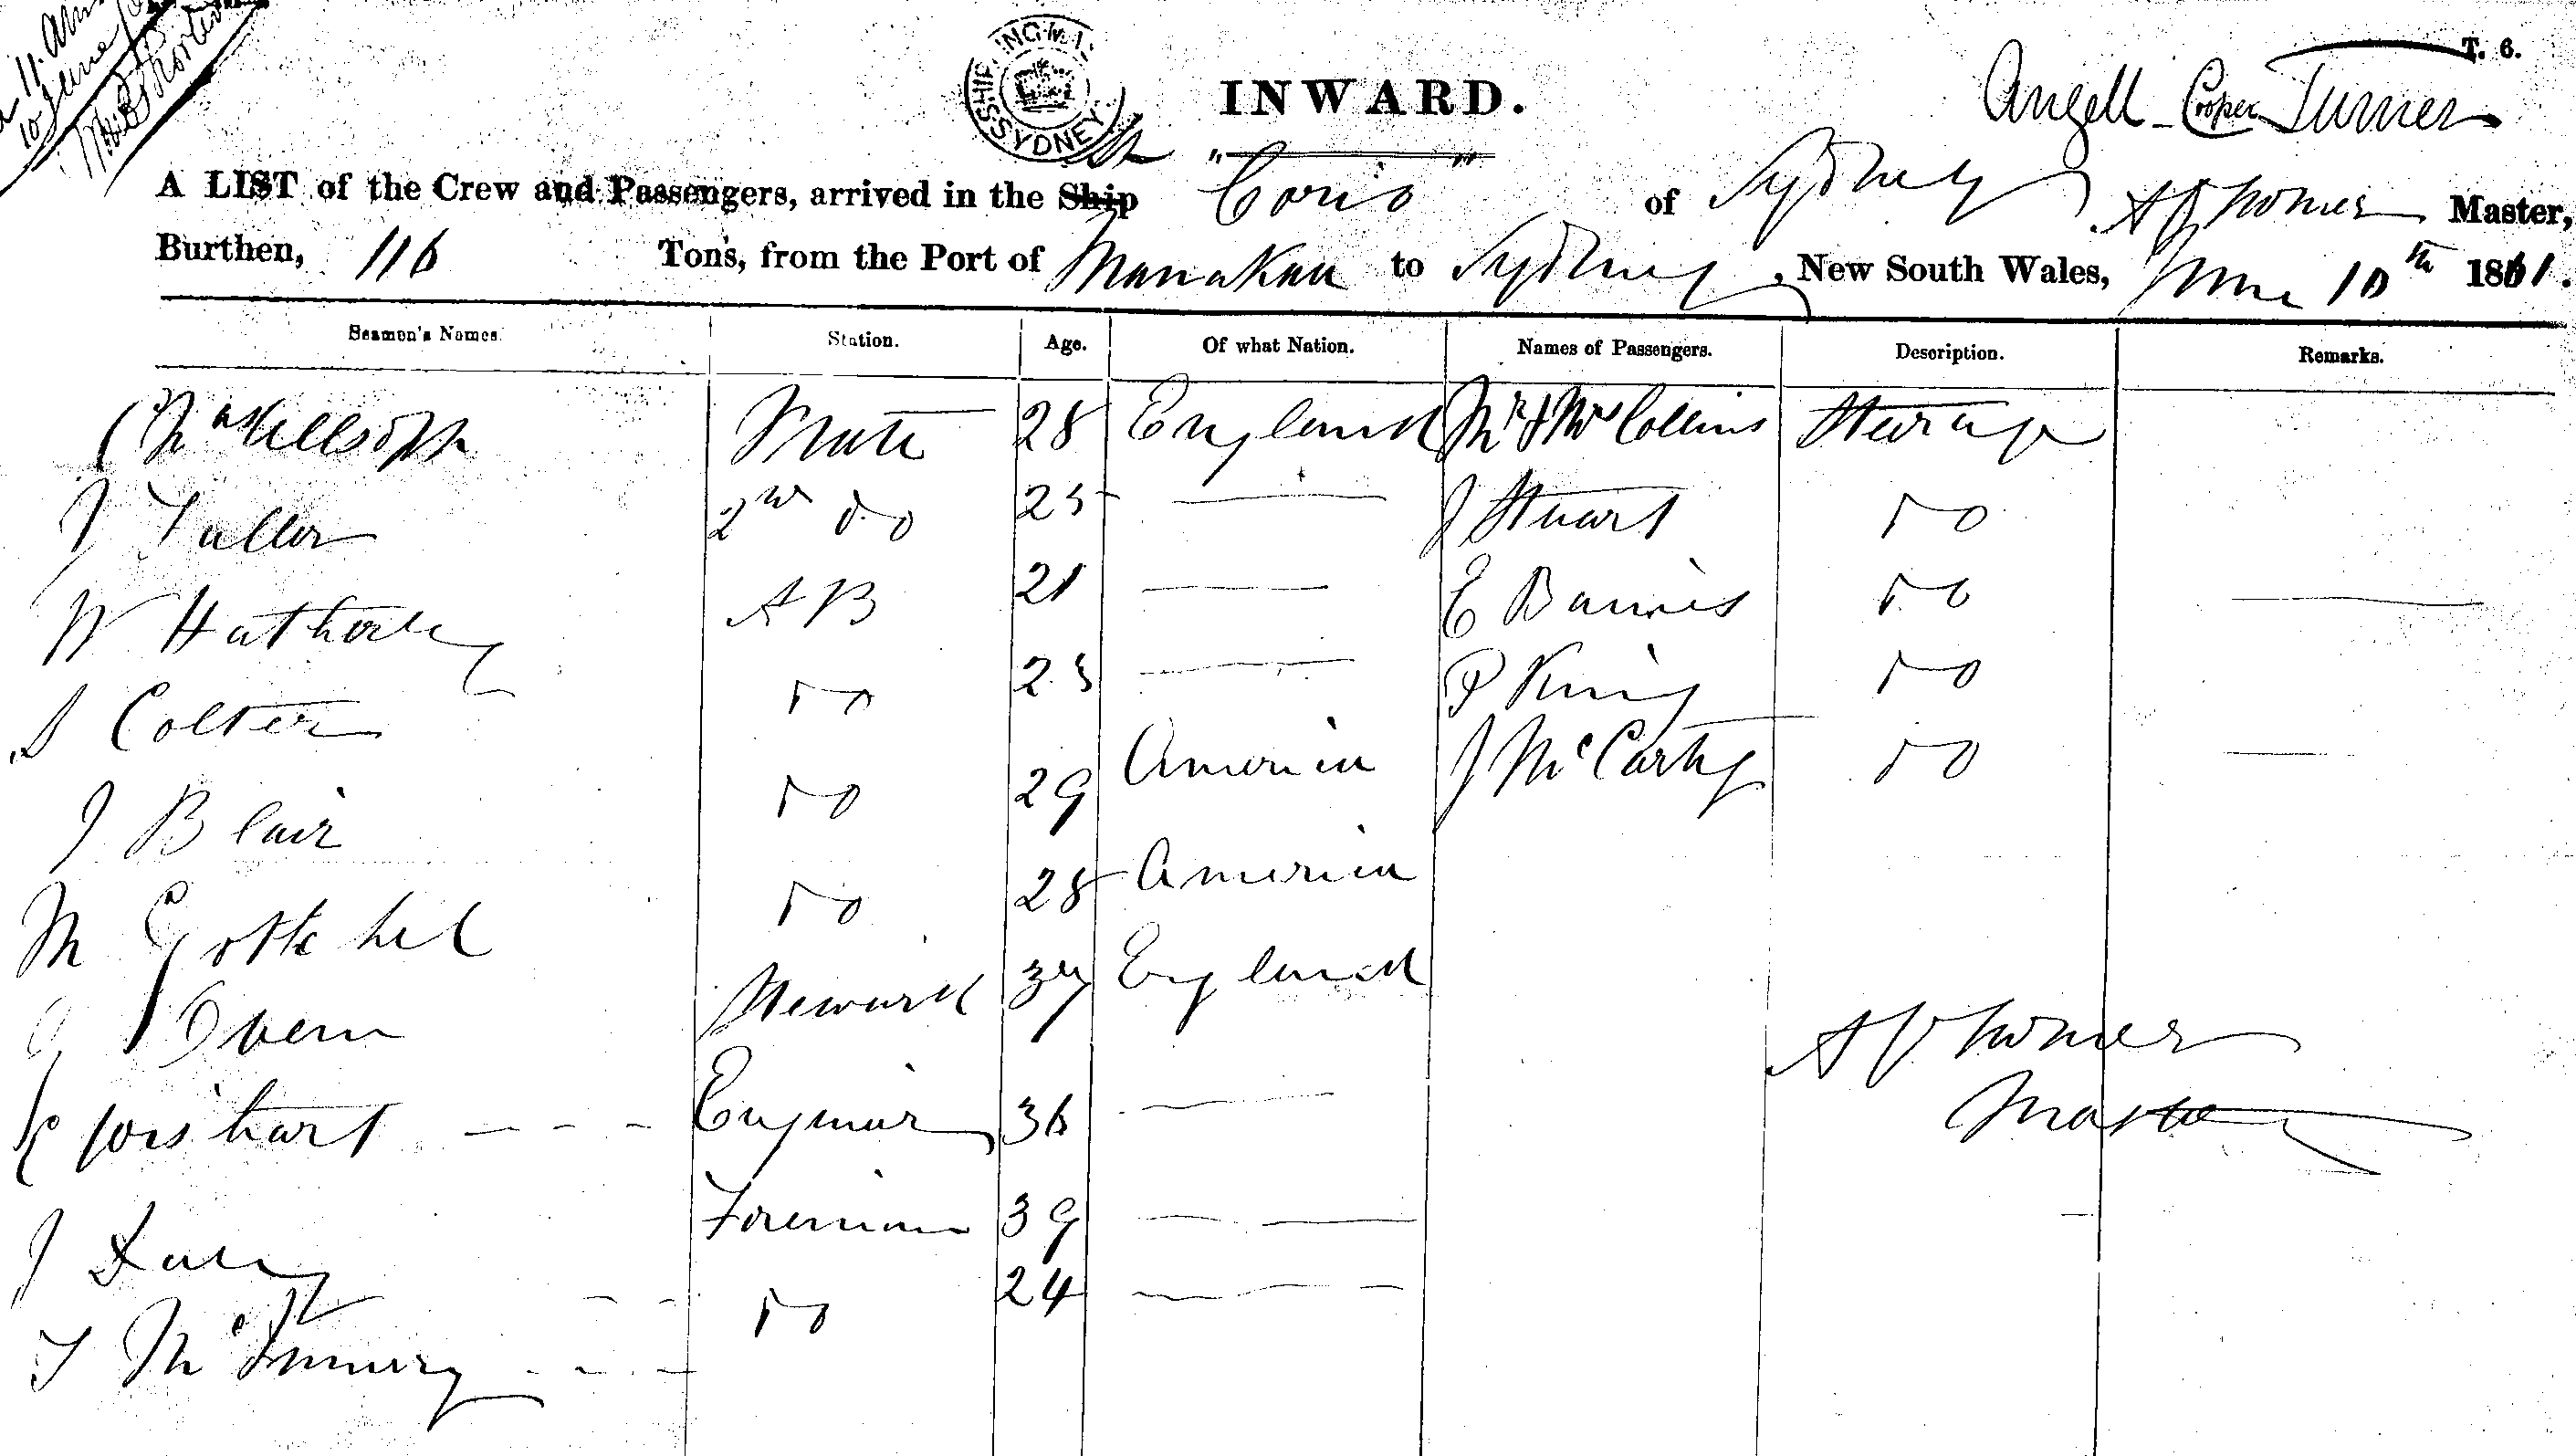 11. am
10 June
T. 6.
SHIPPING MASTERS SYDNEY
INWARD.
Angell Cooper Turner
A LIST of the Crew and Passengers, arrived in the Ship St "Corio" of Sydney, Master,
Burthen, 116 Tons, from the Port of Manakau to Sydney, New South Wales, June 10th 1861.
Seamen's Names. Station. Age. Of what Nation. Names of Passengers. Description. Remarks.
Mate 28 England Mr & Mrs Collins Steerage
J Fuller 2nd do 25 — J Stuart do
W Hathorly AB 21 — E Barnes do —
S Colter do 23 — P King do
J Blair do 29 America J McCarthy do —
M do 28 America
J Owen Steward 34 England
Wishart - - - Engineer 36 —
J Foreman 39 — —
T Mc do 24 — — —
Master